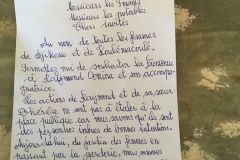 Messieurs les Imams
Messieurs les notables
Chers invités
Au nom de toutes les femmes
de et de
Permettez moi de souhaiter la bienvenue
à Raymond et son accompa-
gnatrice.
Les actions de Raymond et de sa sœur
Thérèse ne sont pas à étaler à la
place publique car nous savons qu'ils sont
des personnes de bonnes intentions.
Aujourd'hui, du jardin des femmes en
passant par la garderie, nous sommes